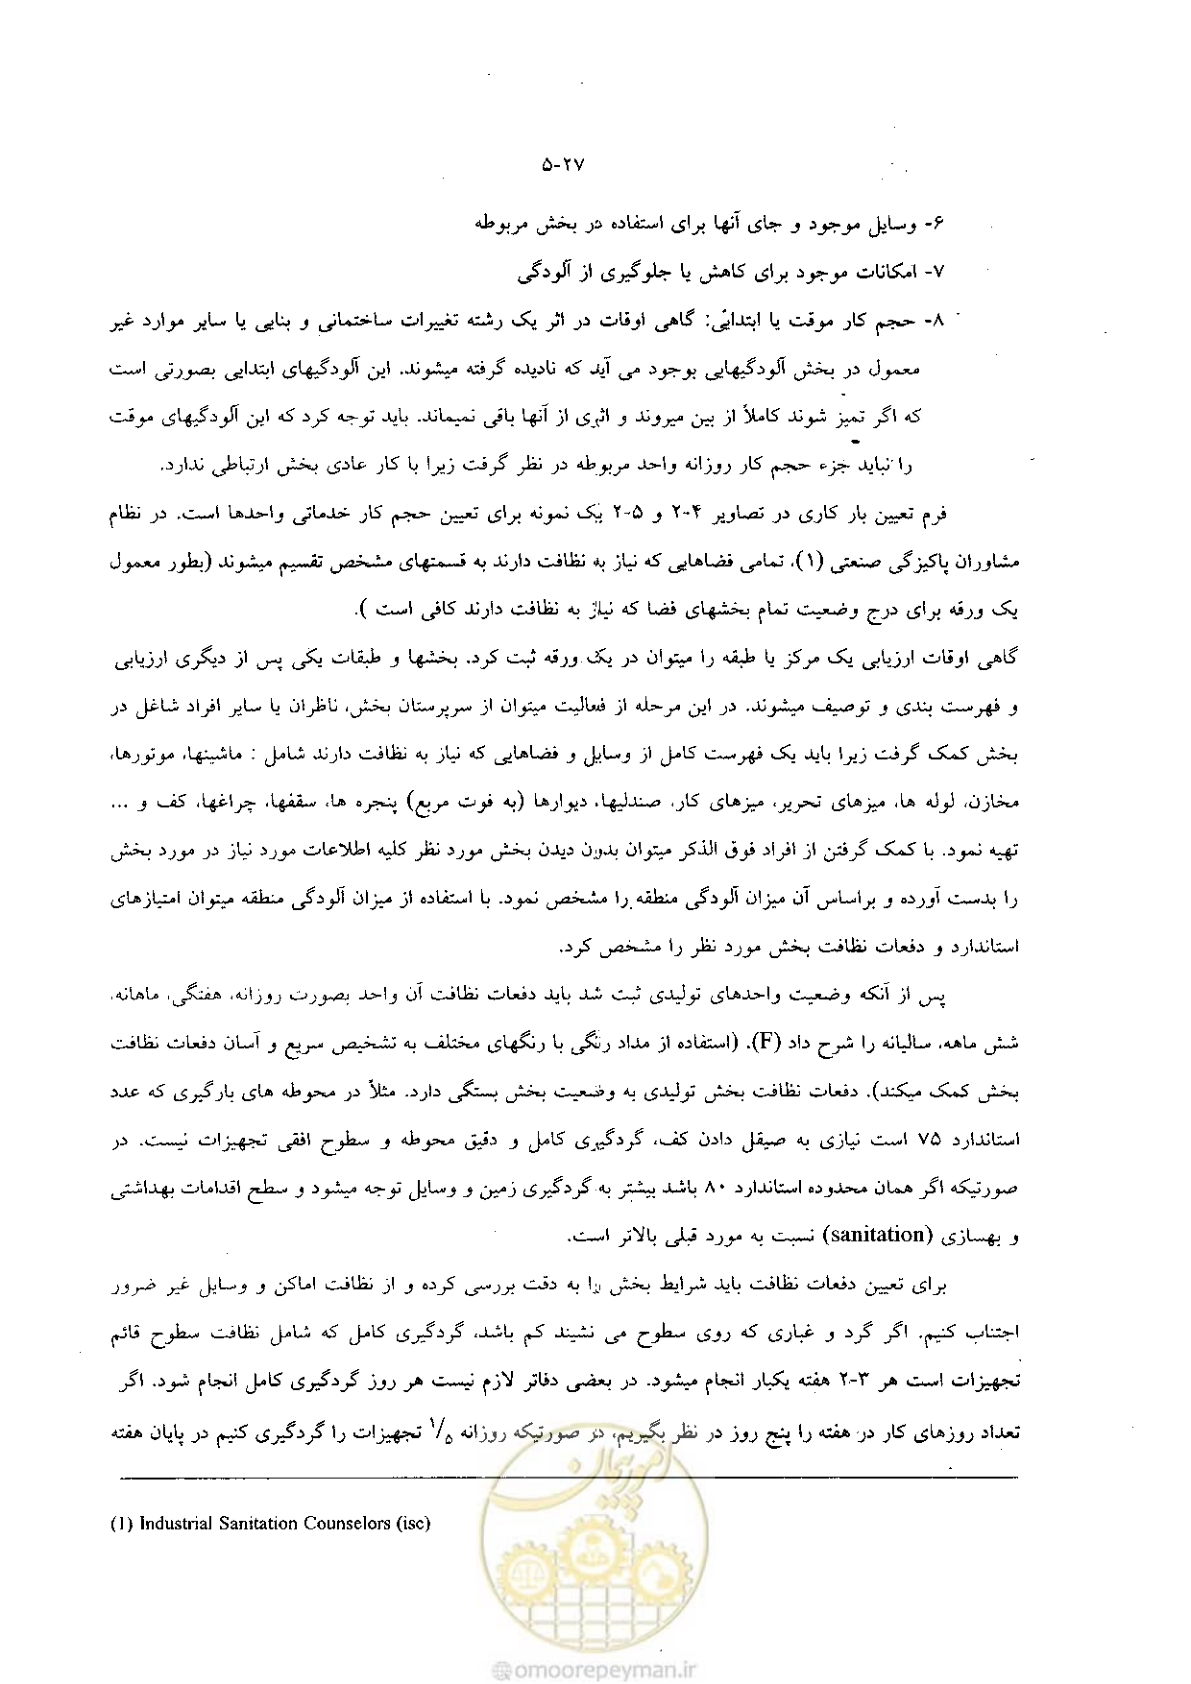 ۵-۲۷
۶- وسایل موجود و جای آنها برای استفاده در بخش مربوطه
۷- امکانات موجود برای کاهش یا جلوگیری از آلودگی
۸- حجم کار موقت یا ابتدائی: گاهی اوقات در اثر یک رشته تغییرات ساختمانی و بنایی یا سایر موارد غیر
معمول در بخش آلودگیهایی بوجود می آید که نادیده گرفته میشوند. این آلودگیهای ابتدایی بصورتی است
که اگر تمیز شوند کاملاً از بین میروند و اثری از آنها باقی نمیماند. باید توجه کرد که این آلودگیهای موقت
را نباید جزء حجم کار روزانه واحد مربوطه در نظر گرفت زیرا با کار عادی بخش ارتباطی ندارد.
فرم تعیین بار کاری در تصاویر ۴-۲ و ۵-۲ یک نمونه برای تعیین حجم کار خدماتی واحدها است. در نظام
مشاوران پاکیزگی صنعتی (۱)، تمامی فضاهایی که نیاز به نظافت دارند به قسمتهای مشخص تقسیم میشوند (بطور معمول
یک ورقه برای درج وضعیت تمام بخشهای فضا که نیاز به نظافت دارند کافی است ).
گاهی اوقات ارزیابی یک مرکز یا طبقه را میتوان در یک ورقه ثبت کرد. بخشها و طبقات یکی پس از دیگری ارزیابی
و فهرست بندی و توصیف میشوند. در این مرحله از فعالیت میتوان از سرپرستان بخش، ناظران یا سایر افراد شاغل در
بخش کمک گرفت زیرا باید یک فهرست کامل از وسایل و فضاهایی که نیاز به نظافت دارند شامل : ماشینها، موتورها،
مخازن، لوله ها، میزهای تحریر، میزهای کار، صندلیها، دیوارها (به فوت مربع) پنجره ها، سقفها، چراغها، کف و ...
تهیه نمود. با کمک گرفتن از افراد فوق الذکر میتوان بدون دیدن بخش مورد نظر کلیه اطلاعات مورد نیاز در مورد بخش
را بدست آورده و براساس آن میزان آلودگی منطقه را مشخص نمود. با استفاده از میزان آلودگی منطقه میتوان امتیازهای
استاندارد و دفعات نظافت بخش مورد نظر را مشخص کرد.
پس از آنکه وضعیت واحدهای تولیدی ثبت شد باید دفعات نظافت آن واحد بصورت روزانه، هفتگی، ماهانه،
شش ماهه، سالیانه را شرح داد (F). (استفاده از مداد رنگی با رنگهای مختلف به تشخیص سریع و آسان دفعات نظافت
بخش کمک میکند). دفعات نظافت بخش تولیدی به وضعیت بخش بستگی دارد. مثلاً در محوطه های بارگیری که عدد
استاندارد ۷۵ است نیازی به صیقل دادن کف، گردگیری کامل و دقیق محوطه و سطوح افقی تجهیزات نیست. در
صورتیکه اگر همان محدوده استاندارد ۸۰ باشد بیشتر به گردگیری زمین و وسایل توجه میشود و سطح اقدامات بهداشتی
و بهسازی (sanitation) نسبت به مورد قبلی بالاتر است.
برای تعیین دفعات نظافت باید شرایط بخش را به دقت بررسی کرده و از نظافت اماکن و وسایل غیر ضرور
اجتناب کنیم. اگر گرد و غباری که روی سطوح می نشیند کم باشد، گردگیری کامل که شامل نظافت سطوح قائم
تجهیزات است هر ۳-۲ هفته یکبار انجام میشود. در بعضی دفاتر لازم نیست هر روز گردگیری کامل انجام شود. اگر
تعداد روزهای کار در هفته را پنج روز در نظر بگیریم، در صورتیکه روزانه ۱/۵ تجهیزات را گردگیری کنیم در پایان هفته
(1) Industrial Sanitation Counselors (isc)
امور پیمان
@omoorepeyman.ir